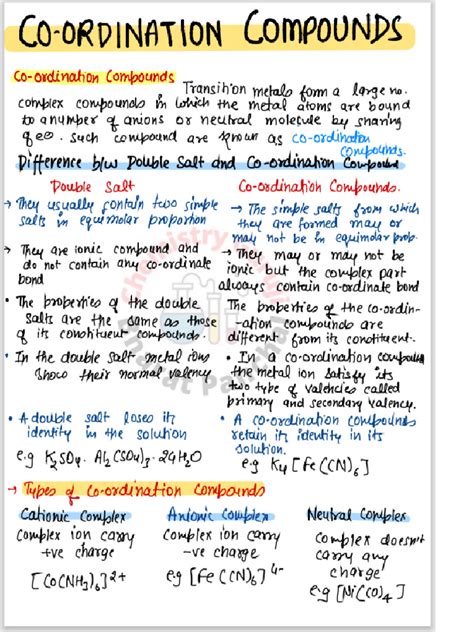 CO-ORDINATION COMPOUNDS
Co-ordination Compounds Transition metals form a large no.
complex compounds in which the metal atoms are bound
to a number of anions or neutral molecule by sharing
of e⊖s. Such compound are known as co-ordination
compounds.
Difference b/w Double Salt and Co-ordination Compound
Double Salt
→ They usually contain two simple
salts in equimolar proportion
→ They are ionic compound and
do not contain any co-ordinate
bond
• The properties of the double
salts are the same as those
of its constituent compounds.
• In the double salt metal ions
show their normal valency
• A double salt loses its
identity in the solution
e.g K₂SO₄. Al₂(SO₄)₃. 24H₂O
Co-ordination Compounds.
→ The simple salts from which
they are formed may or
may not be in equimolar prop.
→ They may or may not be
ionic but the complex part
always contain co-ordinate bond
The properties of the co-ordin-
-ation compounds are
different from its constituent.
• In a co-ordination compound
the metal ion satisfy its
two type of valencies called
primary and secondary valency.
• A co-ordination compounds
retain its identity in its
solution.
eg K₄[Fe(CN)₆]
→ Types of Co-ordination Compounds
Cationic Complex
Complex ion carry
+ve charge
[Co(NH₃)₆]²⁺
Anionic Complex
Complex ion carry
-ve charge
eg [Fe(CN)₆]⁴⁻
Neutral Complex
Complex doesn't
carry any
charge
e.g [Ni(CO)₄]